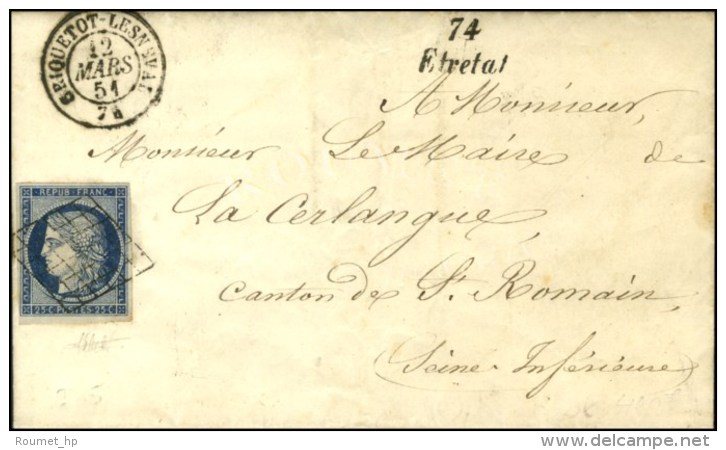 CRIQUETOT-LESNEVAL
12
MARS
51
74
74
Etretat
A Monsieur,
Monsieur Le Maire de
La Cerlangue,
Canton de St. Romain,
(Seine-Inférieure)
REPUB. FRANC.
25 C POSTES 25 C
Roumet_hp
© delcampe.net